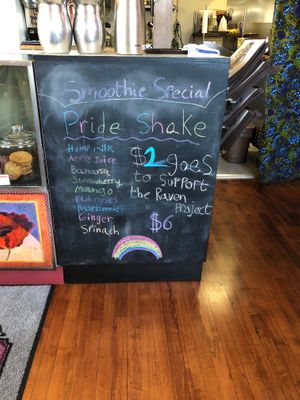 Smoothie Special
Pride Shake
Hemp milk
Apple Juice
Banana
Strawberry
Mango
Blueberries
Raspberries
Ginger
Spinach
$2 goes
to support
the Raven
Project
$6